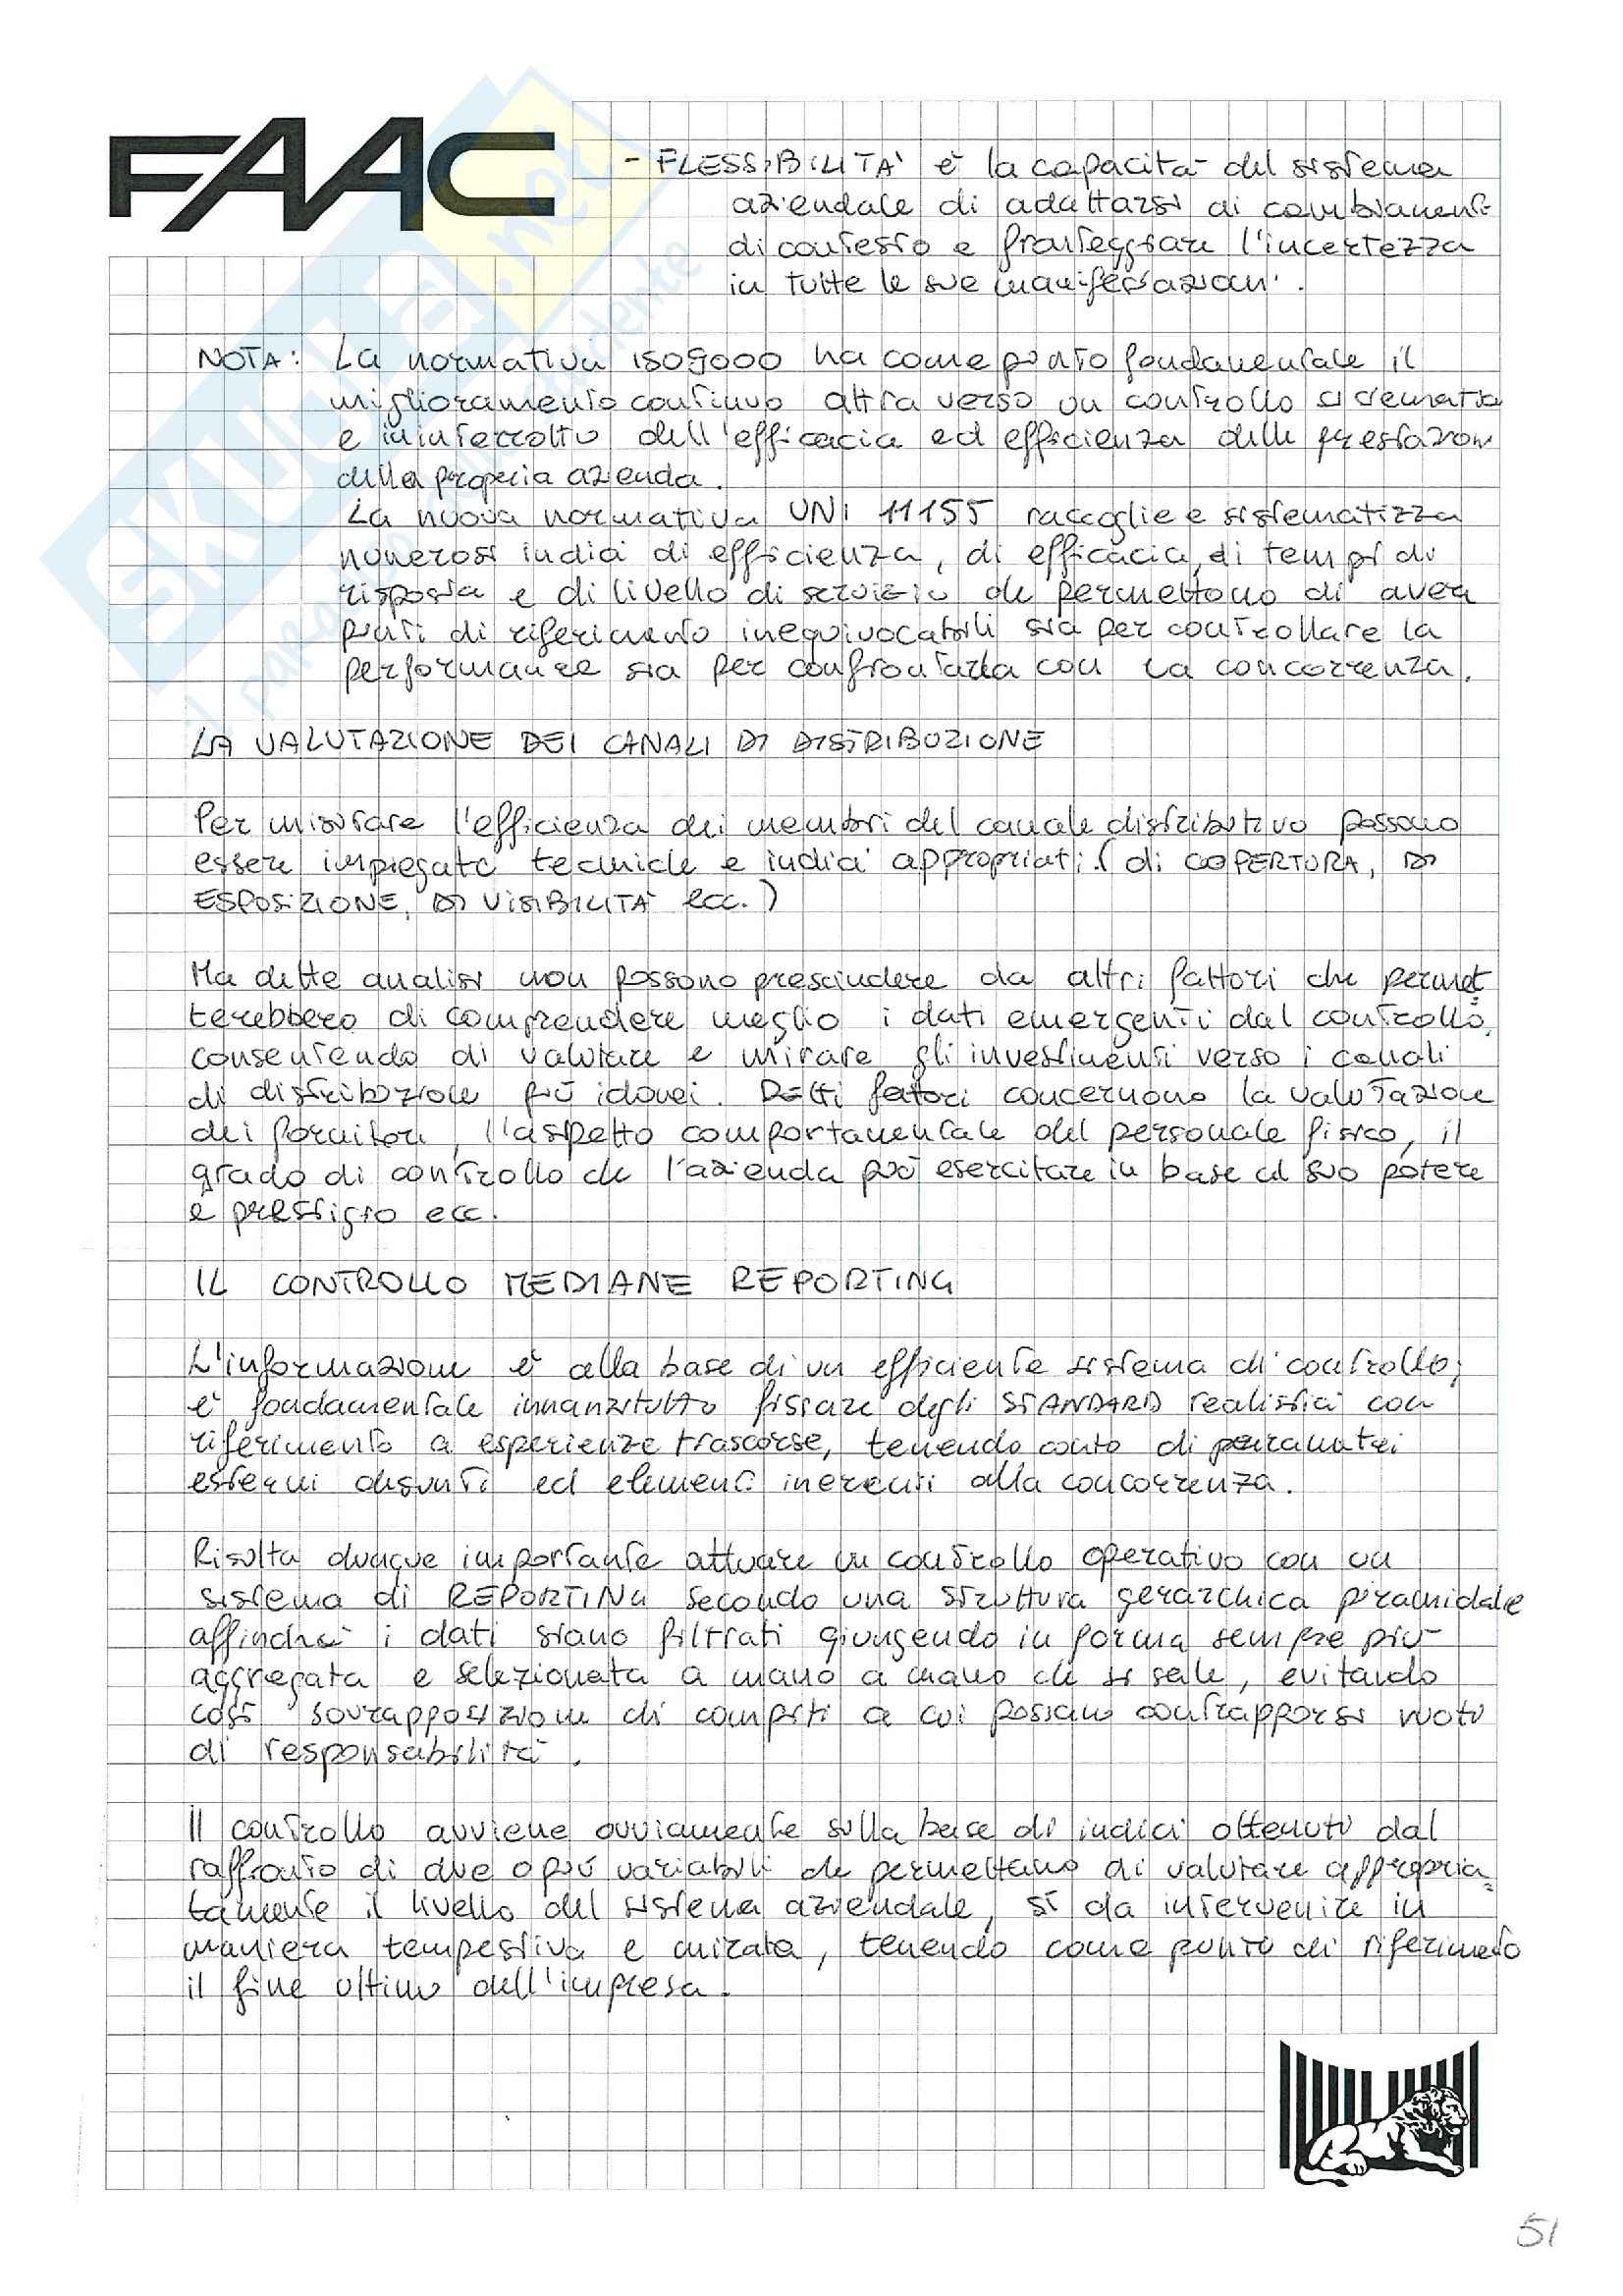 FAAC
- FLESSIBILITA' è la capacità del sistema
aziendale di adattarsi di cambiamenti
di contesto e fronteggiare l'incertezza
in tutte le sue manifestazioni.
NOTA: La normativa ISO9000 ha come punto fondamentale il
miglioramento continuo attraverso un controllo sistematico
e ininterrotto dell'efficacia ed efficienza delle prestazioni
della propria azienda.
La nuova normativa UNI 11155 raccoglie e sistematizza
numerosi indici di efficienza, di efficacia, di tempi di
risposta e di livello di servizio che permettono di avere
punti di riferimento inequivocabili sia per controllare la
performance sia per confrontarla con la concorrenza.
LA VALUTAZIONE DEI CANALI DI DISTRIBUZIONE
Per misurare l'efficienza dei membri del canale distributivo possono
essere impiegate tecniche e indici appropriati (di COPERTURA, DI
ESPOSIZIONE, DI VISIBILITA' ecc.)
Ma dette analisi non possono prescindere da altri fattori che permet
terebbero di comprendere meglio i dati emergenti dal controllo,
consentendo di valutare e mirare gli investimenti verso i canali
di distribuzione più idonei. Detti fattori concernono la valutazione
dei fornitori, l'aspetto comportamentale del personale fisico, il
grado di controllo che l'azienda può esercitare in base al suo potere
e prestigio ecc.
IL CONTROLLO MEDIANE REPORTING
L'informazione è alla base di un efficiente sistema di controllo;
è fondamentale innanzitutto fissare degli STANDARD realistici con
riferimento a esperienze trascorse, tenendo conto di parametri
esterni disgiunti ed elementi inerenti alla concorrenza.
Risulta dunque importante attuare un controllo operativo con un
sistema di REPORTING secondo una struttura gerarchica piramidale
affinchè i dati siano filtrati giungendo in forma sempre più
aggregata e selezionata a mano a mano che si sale, evitando
così sovrapposizione di compiti a cui possano contrapporsi vuoti
di responsabilità.
Il controllo avviene ovviamente sulla base di indici ottenuti dal
raffronto di due o più variabili che permettano di valutare appropria
tamente il livello del sistema aziendale, sì da intervenire in
maniera tempestiva e mirata, tenendo come punto di riferimento
il fine ultimo dell'impresa.
51